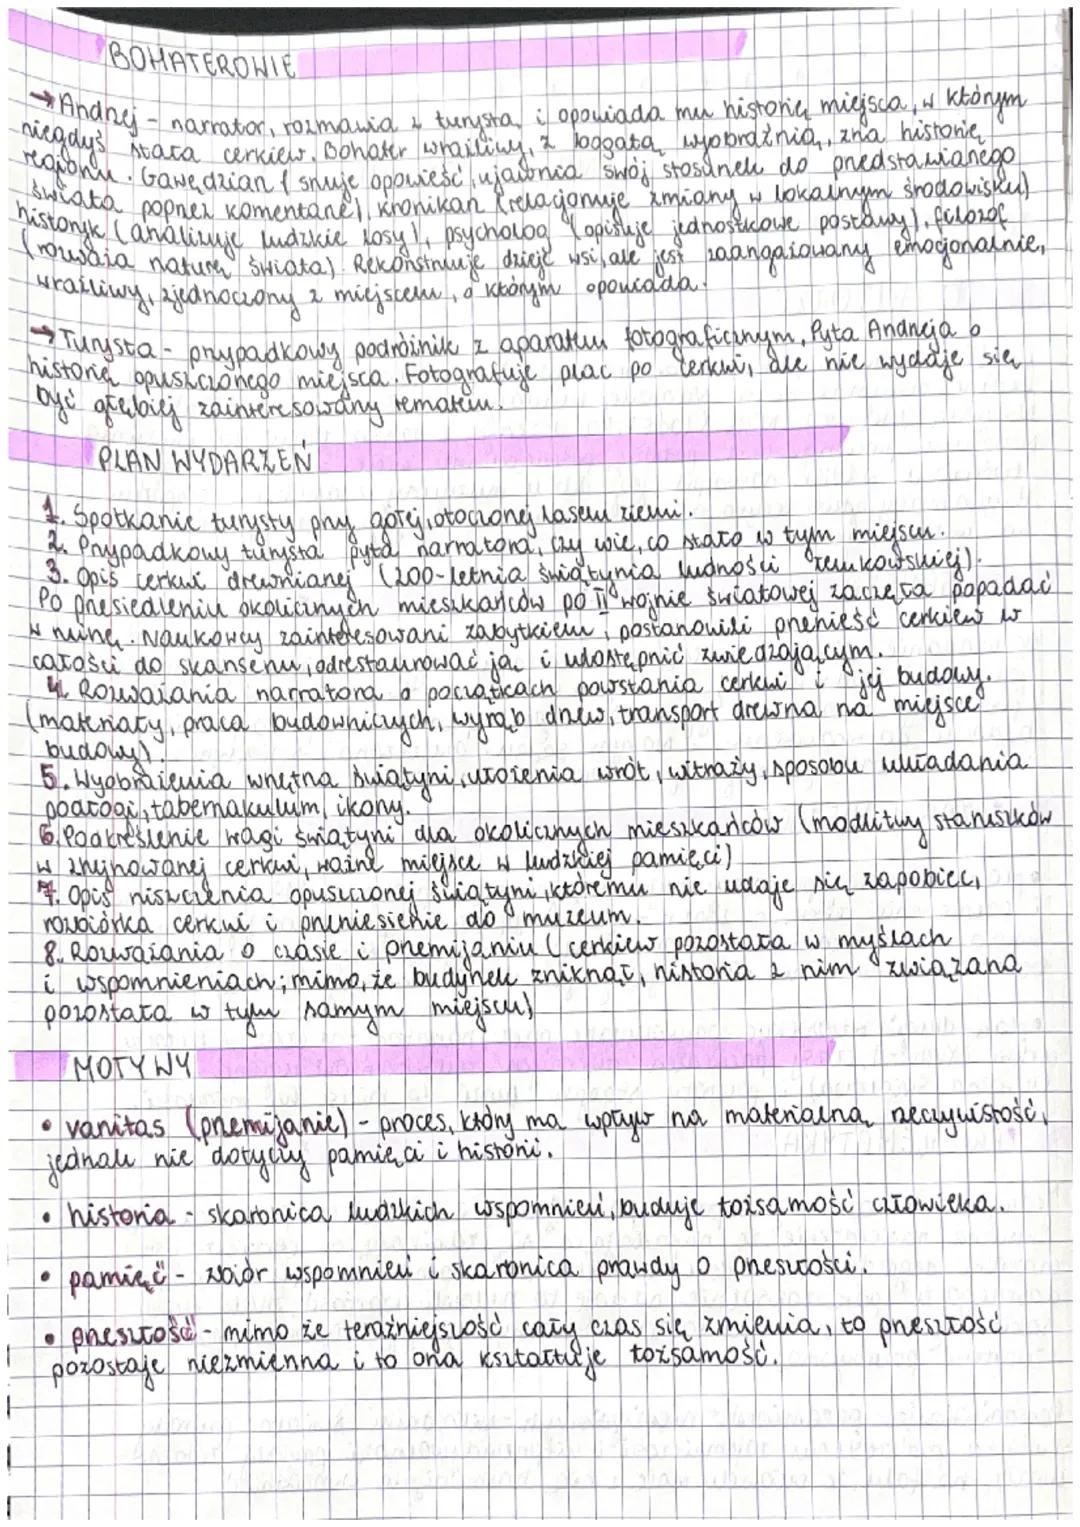 BOHATEROWIE
→ Andrzej - narrator, rozmawia z turystą i opowiada mu historię miejsca, w którym
niegdyś stała cerkiew. Bohater wrażliwy, z bogatą wyobraźnią, zna historię
regionu. Gawędziarz (snuje opowieść, ujawnia swój stosunek do przedstawianego
świata poprzez komentarze), kronikarz (relacjonuje zmiany w lokalnym środowisku)
historyk (analizuje ludzkie losy), psycholog (opisuje jednostkowe postawy), filozof
(rozważa naturę świata). Rekonstruuje dzieje wsi, ale jest zaangażowany emocjonalnie,
wrażliwy, zjednoczony z miejscem, o którym opowiada.
→ Turysta - przypadkowy podróżnik z aparatem fotograficznym. Pyta Andrzeja o
historię opuszczonego miejsca. Fotografuje plac po cerkwi, ale nie wydaje się
być głębiej zainteresowany tematem.
PLAN WYDARZEŃ
1. Spotkanie turysty przy gołej, otoczonej lasem ziemi.
2. Przypadkowy turysta pyta narratora, czy wie, co stało w tym miejscu.
3. Opis cerkwi drewnianej (200-letnia świątynia ludności łemkowskiej).
Po przesiedleniu okolicznych mieszkańców po II wojnie światowej zaczęła popadać
w ruinę. Naukowcy zainteresowani zabytkiem, postanowili przenieść cerkiew w
całości do skansenu, odrestaurować ją i udostępnić zwiedzającym.
4. Rozważania narratora o początkach powstania cerkwi i jej budowy.
(materiały, praca budowniczych, wyrąb drzew, transport drewna na miejsce
budowy).
5. Wyobrażenia wnętrza świątyni, ułożenia wrót, witraży, sposobu układania
podłogi, tabernakulum, ikony.
6. Podkreślenie wagi świątyni dla okolicznych mieszkańców (modlitwy staruszków
w zrujnowanej cerkwi, ważne miejsce w ludzkiej pamięci)
7. Opis niszczenia opuszczonej świątyni, któremu nie udaje się zapobiec,
rozbiórka cerkwi i przeniesienie do muzeum.
8. Rozważania o czasie i przemijaniu (cerkiew pozostała w myślach
i wspomnieniach; mimo, że budynek zniknął, historia z nim związana
pozostała w tym samym miejscu)
MOTYWY
• vanitas (przemijanie) - proces, który ma wpływ na materialną rzeczywistość,
jednak nie dotyczy pamięci i historii.
• historia - skarbnica ludzkich wspomnień, buduje tożsamość człowieka.
• pamięć - zbiór wspomnień i skarbnica prawdy o przeszłości.
• przeszłość - mimo że teraźniejszość cały czas się zmienia, to przeszłość
pozostaje niezmienna i to ona kształtuje tożsamość.